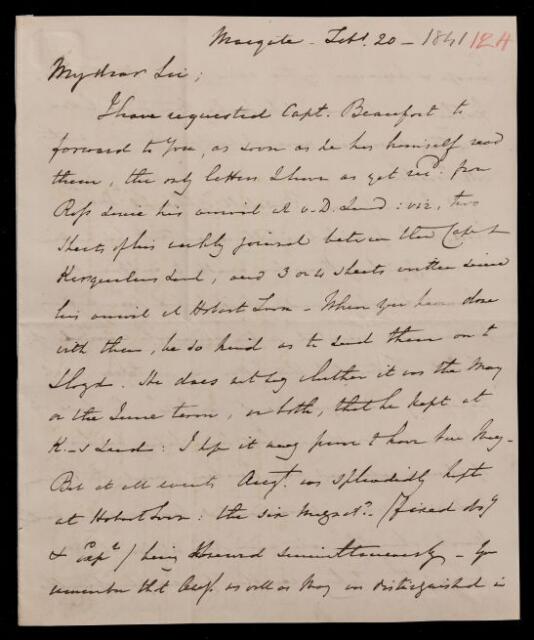 Margate - Feb. 20 - 1841 124
My dear Sir;
I have requested Capt. Beaufort to
forward to you, as soon as he has himself read
them, the only letters I have as yet recd. from
Ross since his arrival at V. D. Land: viz. two
sheets of his weekly journal between the Cape &
Kerguelens Land, and 3 or 4 sheets written since
his arrival at Hobart Town - When you have done
with them, be so kind as to send them on to
Lloyd. He does not say whether it was the May
or the June term, or both, that he kept at
K-s Land: I hope it may prove to have been May -
But at all events Augt. was splendidly kept
at Hobart Town: the six Magnets - (fixed
& ) being observed simultaneously - You
remember that Augt. as well as May was distinguished in